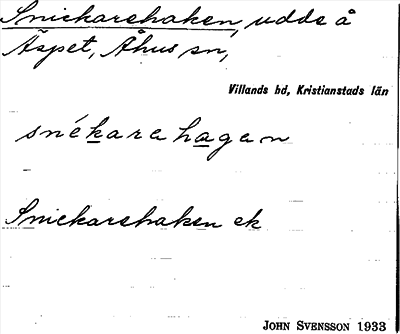 Snickarehaken, udde å
Äspet, Åhus sn,
Villands hd, Kristianstads län
snékarehagen
Snickarehaken ek
JOHN SVENSSON 1933